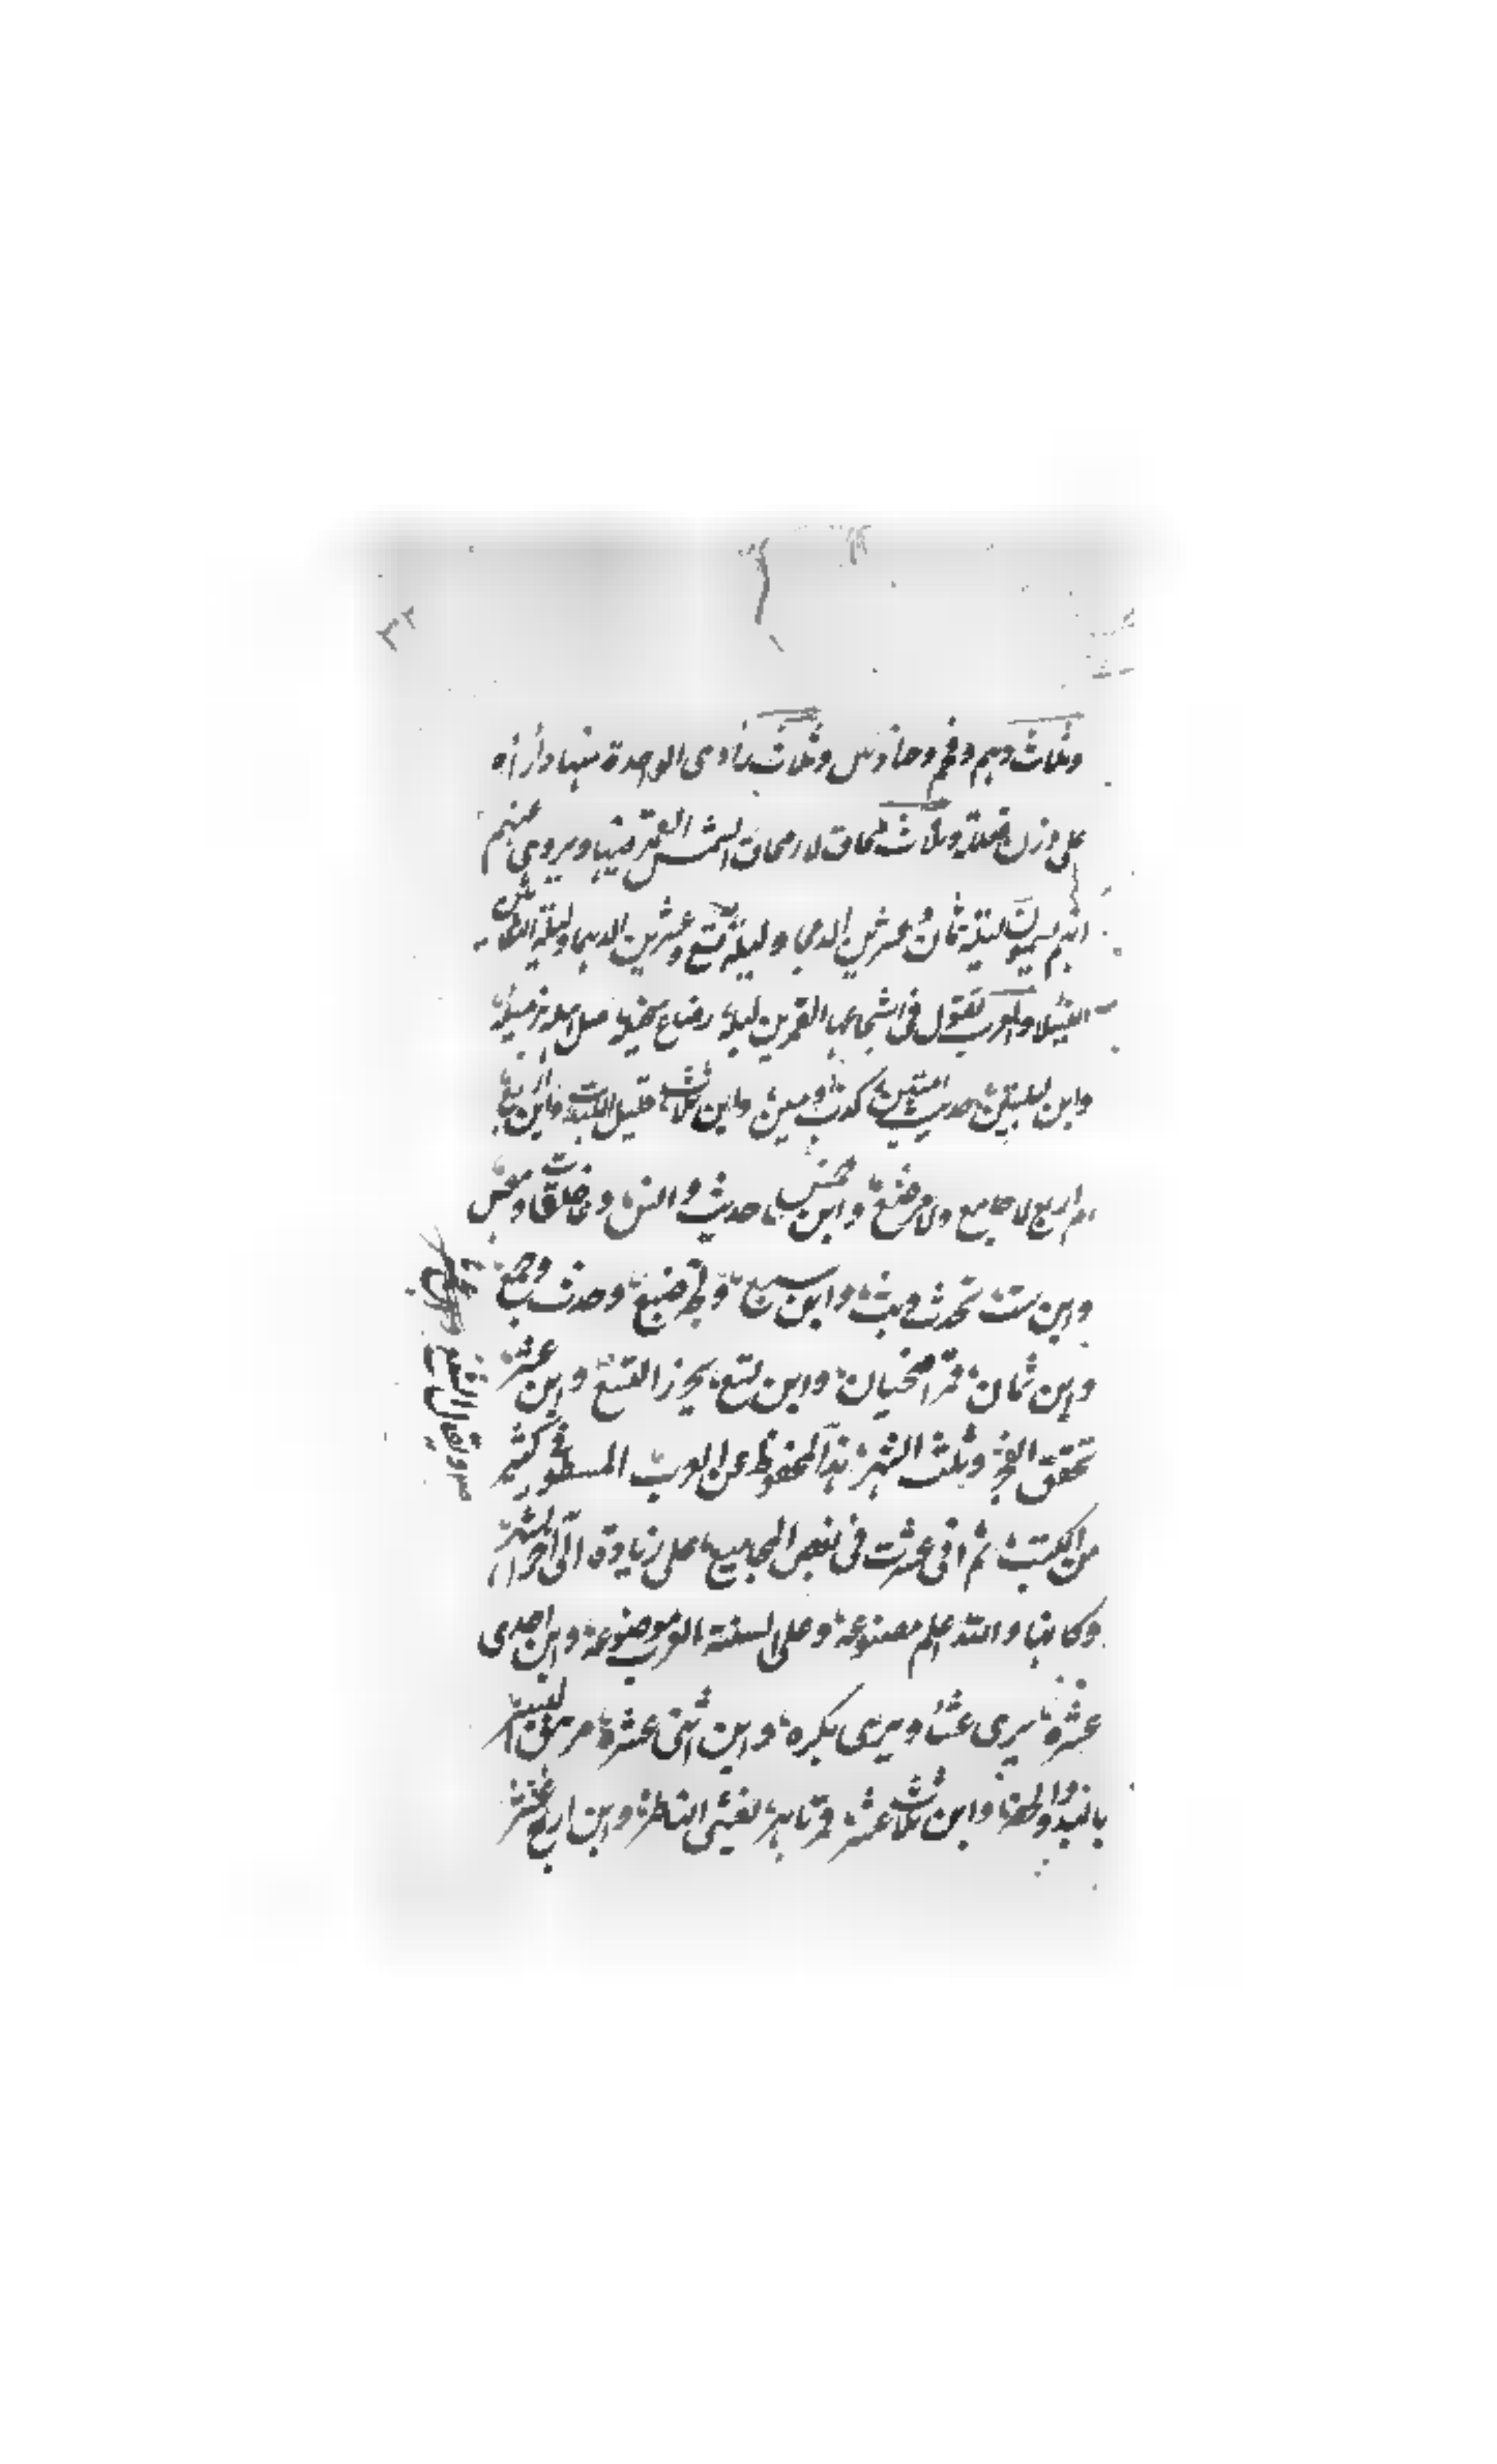 وثلاث دهم وقحم وحنادس وثلاث دآدى الواحدة منها دأدأة
على وزن فعللة وثلاث محاق لامحاق الشمس القمر فيها ويروى عنهم
انهم يسمون ليلة ثمان وعشرين الدعجا وليلة تسع وعشرين الدهما وليلة الثلاثين
الليلا والعرب تقول فى اسجاع القمر ابن ليلة رضاع سخيلة حل اهلها برميلة
وابن ليلتين حديث امتين كذب ومين وابن ثلاث قليل اللباث وابن اربع
ام اربع لا جايع ولا مرضع وابن خمس حديث وانس وعشا خلفات قعس
وابن ست تحدث وبت وابن سبع دلجة ضبع وحديث وجمع
وابن ثمان قمر اضحيان وابن تسع يحرز الشسع وابن عشر
تحقق الفجر وثلث الشهر هذا المحفوظ عن العرب المسطور فى كثير
من الكتب ثم انى عثرت فى بعض المجاميع على زيادة الى آخر الشهر
وكانها والله اعلم مصنوعة وعلى السنة العرب موضوعة وابن احدى
عشرة يرى عشا ويرى بكره وابن اثنتى عشرة مرهق
بالبدو والحضر وابن ثلاث عشر قمر باهر يعشى الناظر وابن اربع عشر